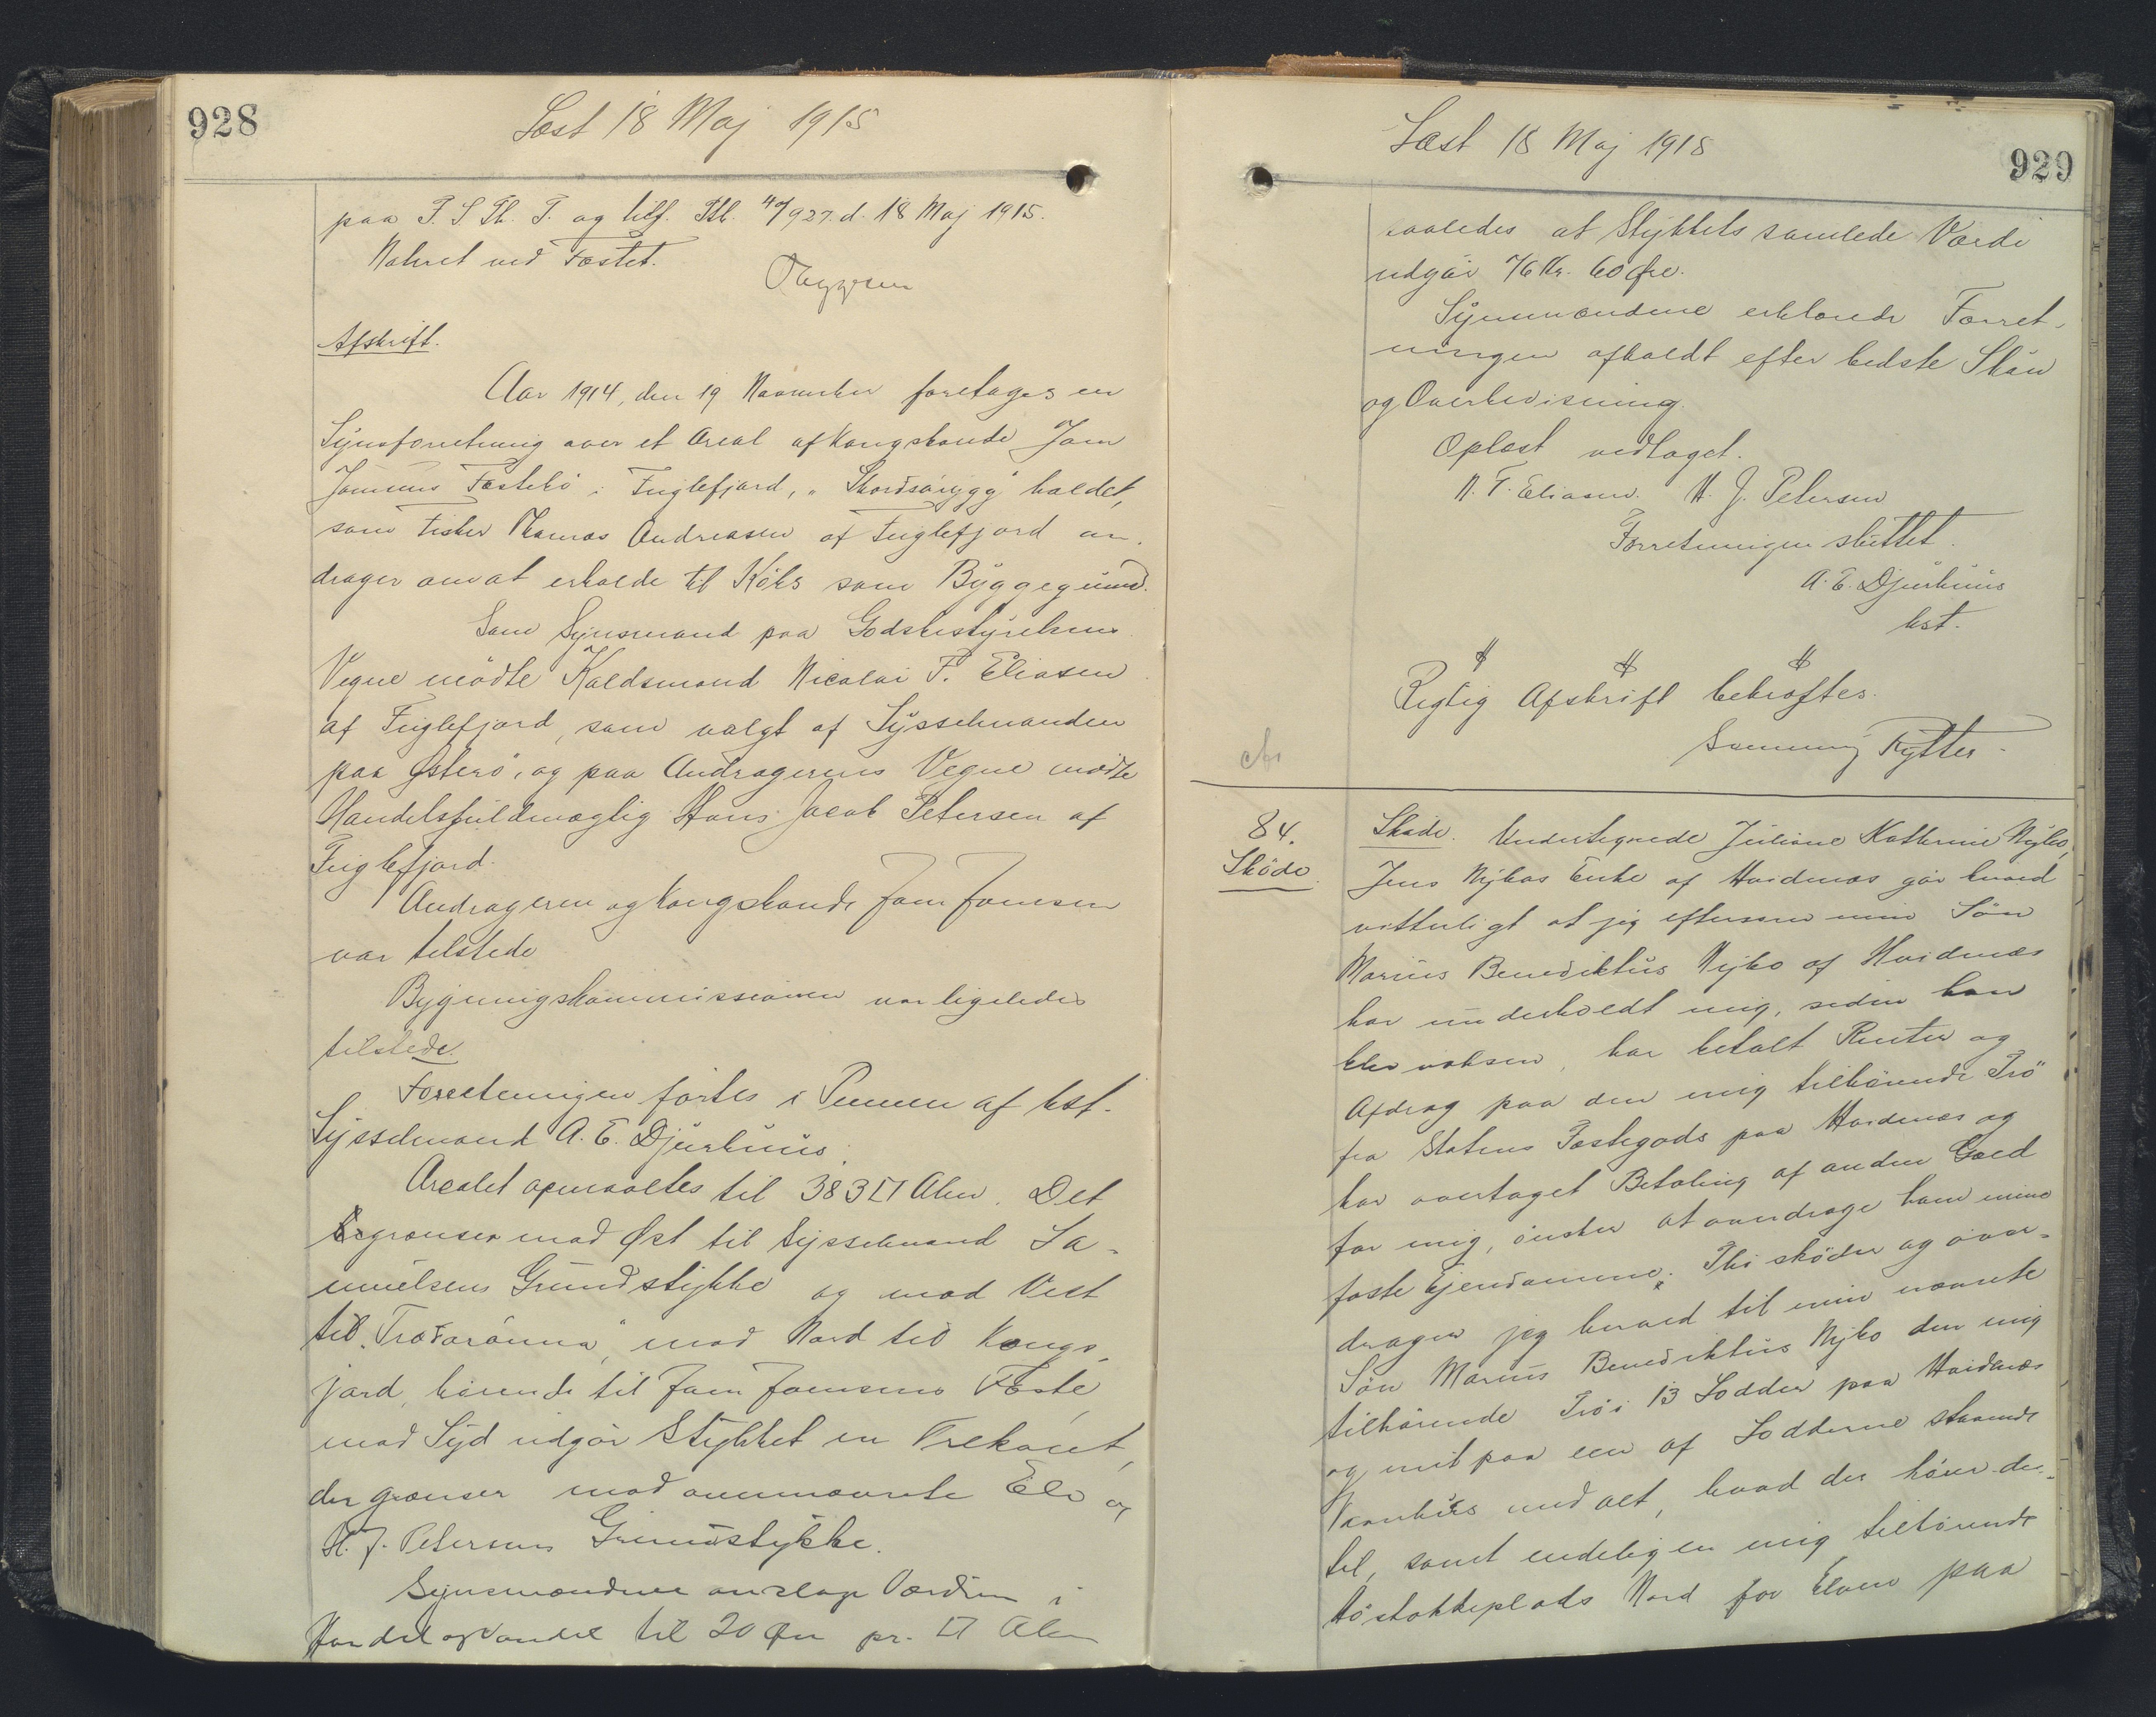 928
Læst 18 Maj 1915
paa F. S. Th. T. og lilf. Bl. 4/927. d. 18 Maj 1915.
Noteret ved Fæstet.
Afskrift.
Aar 1914, den 19 November foretages en
Synsforretning over et Areal af Kongsbonde Joen
Joensens Fæstebø i Fuglefjord, kaldet,
som Fisker Thomas Andreasen af Fuglefjord an-
drager om at erholde til Købs som Byggegrund.
Som Synsmand paa Godsbestyrelsens
Vegne mødte Kaldsmand Nicolai F. Eliasen
af Fuglefjord, som valgt af Sysselmanden
paa Østerø, og paa Andragerens Vegne mødte
Handelsfuldmægtig Hans Jacob Petersen af
Fuglefjord.
Andrageren og Kongsbonde Joen Joensen
var tilstede
Bygningskommissionen var ligeledes
tilstede.
Forretningen førtes i Pennen af kst.
Sysselmand A. E. Djurhuus.
Arealet opmaaltes til 383 □ Alen. Det
begrænses mod Øst til Sysselmand Sa-
muelsens Grundstykke og mod Vest
til, mod Nord til Kongs-
jord, hørende til Joen Joensens Fæste,
mod Syd udgør Stykket en Trekant,
der grænser mod ommeldte Elv og
H. J. Petersens Grundstykke.
Synsmændene anslog Værdien i
Handel og Vandel til 20 Øre pr. □ Alen
Læst 18 Maj 1915
929
saaledes at Stykkets samlede Værdi
udgør 76 Kr. 60 Øre.
Synsmændene erklærede Forret-
ningen afholdt efter bedste Skøn
og Overbevisning.
Oplæst vedtaget.
N. F. Eliasen. H. J. Petersen
Forretningen sluttet.
A. E. Djurhuus
kst.
Rigtig Afskrift bekræftes.
Rytter.
84.
Skøde.
Skøde. Undertegnede Juliane Katherine Nybo,
Jens Nybos Enke af Hvidenæs gør herved
vitterligt at jeg eftersom min Søn
Marius Benediktus Nybo af Hvidenæs
har underholdt mig, siden han
blev voksen, har betalt Renter og
Afdrag paa den mig tilhørende Trø
fra Statens Fæstegods paa Hvidenæs og
har overtaget Betaling af anden Gæld
for mig, ønsker at overdrage ham mine
faste Ejendomme. Thi skøder og over-
drager jeg herved til min nævnte
Søn Marius Benediktus Nybo den mig
tilhørende Trø i 13 Lodder paa Hvidenæs
og mit paa een af Lodderne staaende
Vaanhus med alt, hvad der hører der-
til, samt endelig en mig tilhørende
Høstakkeplads Nord for Elven paa